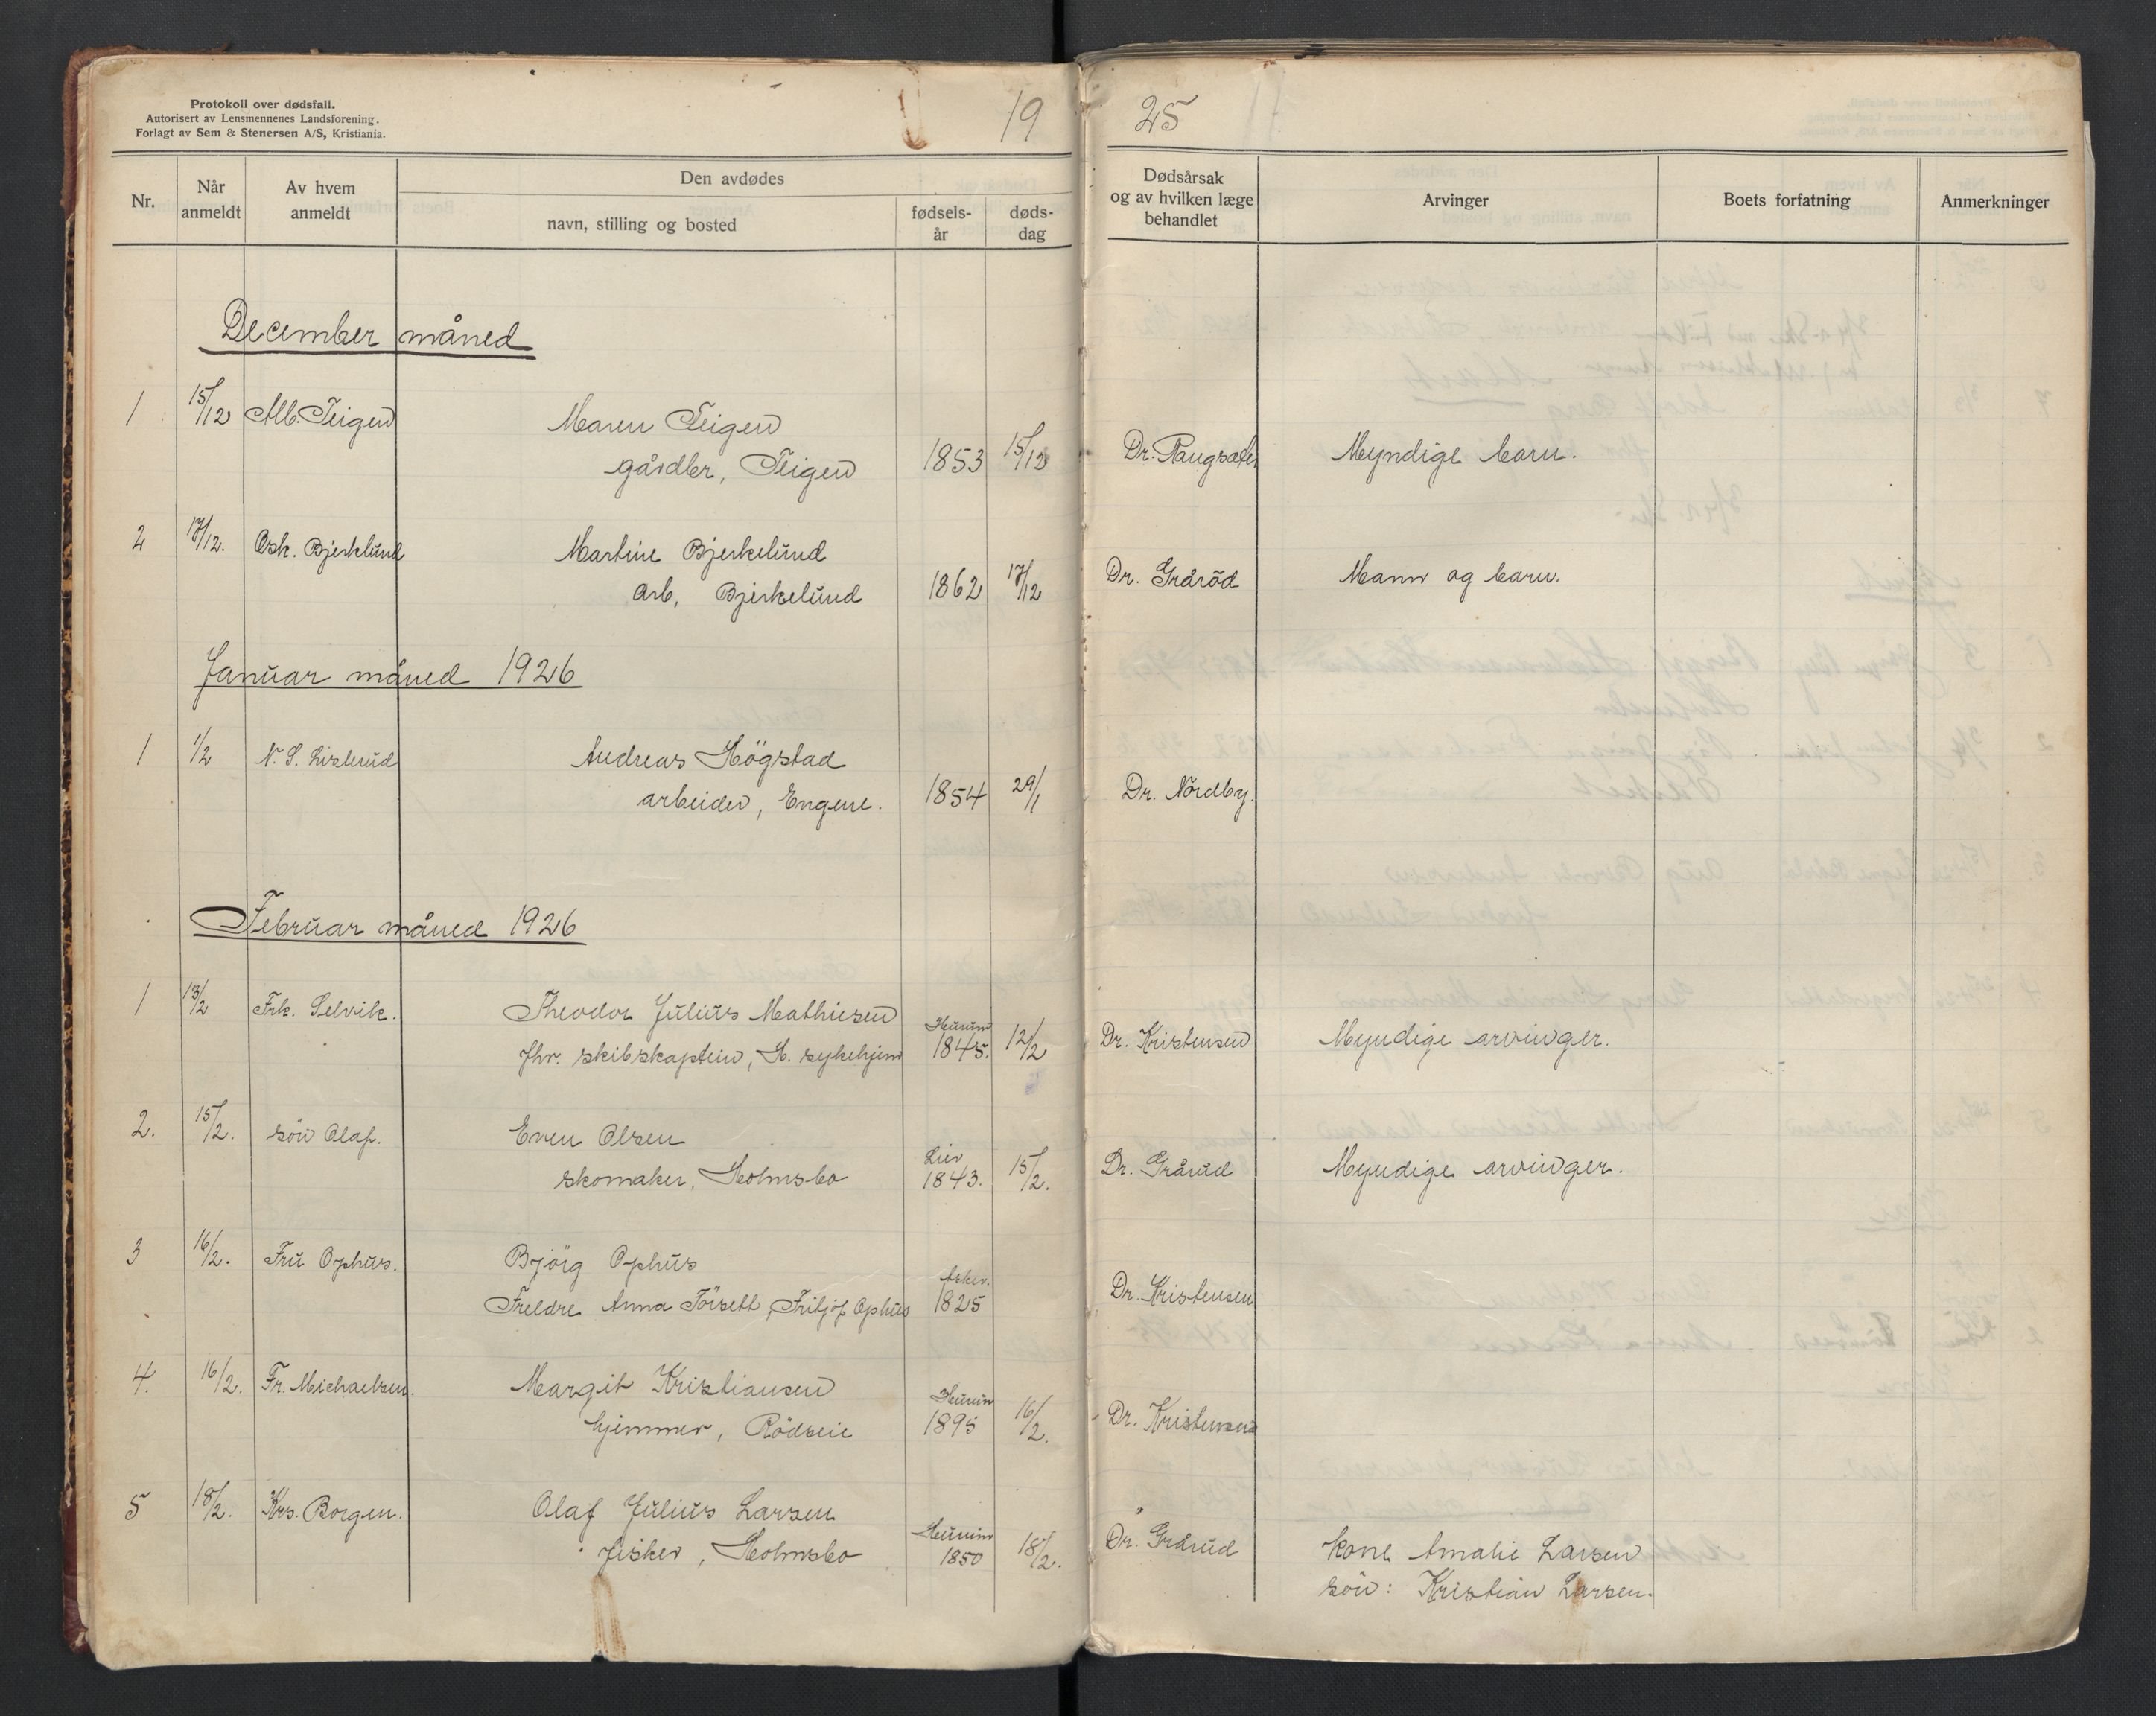 Protokoll over dødsfall.
Autorisert av Lensmennenes Landsforening.
Forlagt av Sem & Stenersen A/S, Kristiania.
19 25
Nr. Når anmeldt Av hvem anmeldt Den avdødes navn, stilling og bosted fødsels-år døds-dag Dødsårsak og av hvilken læge behandlet Arvinger Boets forfatning Anmerkninger
December måned
1 15/12 Alb. Teigen Maren Teigen
gårdbr, Teigen 1853 15/12 Dr. Raugsæter Myndige barn.
2 17/12. Osk. Bjerklund Martine Bjerkelund
arb, Bjerkelund 1862 17/12 Dr. Gråröd Mann og barn.
Januar måned 1926
1 1/2 N. S. Lislerud Andreas Högstad
arbeider, Engene. 1854 29/1 Dr. Nordby.
Februar måned 1926
1 13/2 Frk. Selvik. Theodor Julius Mathiesen
fhv. skibskaptein, H. sykehjem Hurum 1845. 12/2 Dr. Kristensen Myndige arvinger.
2. 15/2. sön Olaf. Even Olsen
skomaker, Holmsbo Lier 1843. 15/2. Dr. Grårud Myndige arvinger.
3 16/2. Fru Ophus. Björg Ophus
Freldre Anna Törsett, Fritjof Ophus Asker. 1825 Dr. Kristensen
4. 16/2. Fr. Michaelsen. Margit Kristiansen
hjemmev, Rödseie Hurum 1895 16/2. Dr. Kristensen
5 18/2. Krs. Borgen. Olaf Julius Larsen
fisker, Holmsbo Hurum 1850 18/2. Dr. Grårud Kone Amalie Larsen
sön: Kristian Larsen.